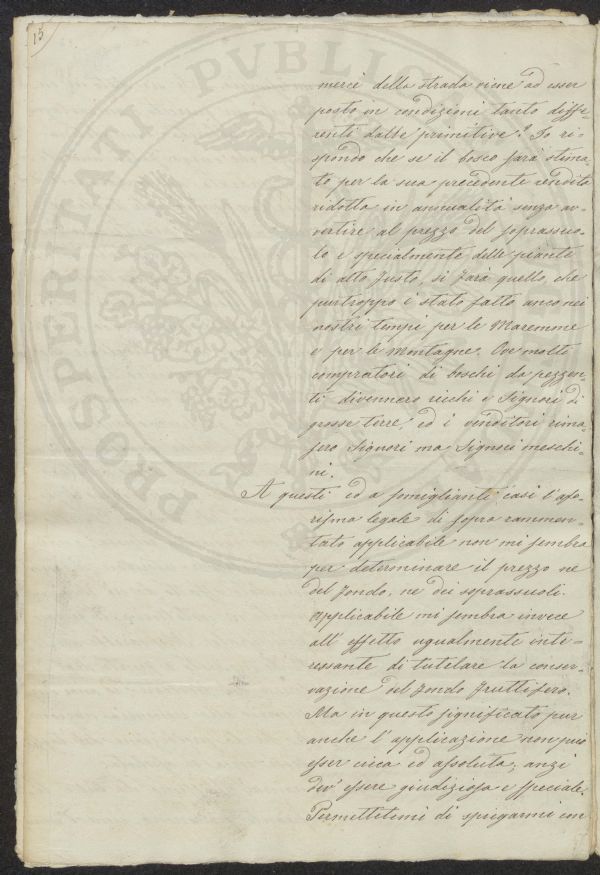 15
PROSPERITATI PVBLIC
mercè della strada viene ad esser
posto in condizioni tanto diffe-
renti dalle primitive? Io ri-
spondo che se il bosco sarà stima-
to per la sua precedente rendita
ridotta in annualità senza av-
vertire al prezzo del soprassuo-
lo e specialmente delle piante
di alto fusto, si farà quello, che
purtroppo è stato fatto anco nei
nostri tempi per le Maremme
e per le Montagne. Ove molti
compratori di boschi da pezzen-
ti divennero ricchi e Signori di
grosse terre, ed i venditori rima-
sero Signori ma Signori meschi-
ni.
A questi ed a somiglianti casi l'afo-
risma legale di sopra rammen-
tato applicabile non mi sembra
per determinare il prezzo ne
del fondo, ne dei soprassuoli.
Applicabile mi sembra invece
all' effetto ugualmente inte-
ressante di tutelare la conser-
vazione del fondo fruttifero.
Ma in questo significato pur
anche l'applicazione non può
esser cieca ed assoluta; anzi
dev' essere giudiziosa e speciale.
Permettetemi di spiegarmi con